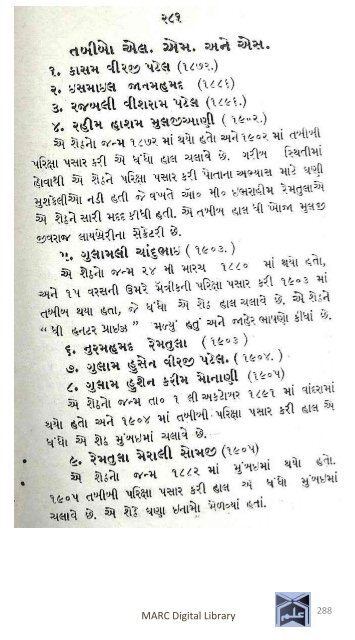 ૨૮૧
તબીબો એલ. એમ. અને એસ.
૧. કાસમ વીરજી પટેલ (૧૮૭૨.)
૨. ઇસમાઇલ જાનમહમદ (૧૮૮૬)
૩. રજબલી વીશરામ પટેલ (૧૮૯૬.)
૪. રહીમ હાશમ મુલજીઆણી (૧૯૦૨.)
એ શેઠનો જન્મ ૧૮૭૨ માં થયો હતો અને ૧૯૦૨ માં તબીબી
પરિક્ષા પસાર કરી એ ધંધો હાલ ચલાવે છે. ગરીબ સ્થિતીમાં
હોવાથી એ શેઠને પરિક્ષા પસાર કરી પોતાના અભ્યાસ માટે ઘણી
મુશકેલીઓ નડી હતી જે વખતે ઓ૦ મી૦ ઇબરાહીમ રેમતુલાએ
એ શેઠને સારી મદદ કીધી હતી. એ તબીબ હાલ ધી ખોજા મુલજી
જીવરાજ લાયબ્રેરીના સેક્રેટરી છે.
૫. ગુલામલી ચાંદુભાઇ (૧૯૦૩.)
એ શેઠનો જન્મ ૨૪ મી મારચ ૧૮૮૦ માં થયો હતો,
અને ૧૫ વરસની ઉમરે મેત્રીકની પરિક્ષા પસાર કરી ૧૯૦૩ માં
તબીબ થયા હતા, જે ધંધો એ શેઠ હાલ ચલાવે છે. એ શેઠને
“ધી હનટર પ્રાઇઝ” મળ્યું હતું અને જાહેર ભાષણો કીધાં છે.
૬. નુરમહમદ રેમતુલા (૧૯૦૩)
૭. ગુલામ હુસેન વીરજી પટેલ. (૧૯૦૪.)
૮. ગુલામ હુશેન કરીમ મોનાણી (૧૯૦૫)
એ શેઠનો જન્મ તા૦ ૧ લી અકટોબર ૧૮૯૧ માં વાંદરામાં
થયો હતો અને ૧૯૦૪ માં તબીબી પરિક્ષા પસાર કરી હાલ એ
ધંધો એ શેઠ મુંબઇમાં ચલાવે છે.
૯. રેમતુલા મેરાલી સોમજી (૧૯૦૫)
એ શેઠનો જન્મ ૧૮૮૨ માં મુંબઇમાં થયો હતો.
૧૯૦૫ તબીબી પરિક્ષા પસાર કરી હાલ એ ધંધો મુંબઇમાં
ચલાવે છે. એ શેઠે ઘણા ઇનામો મેળવ્યાં હતાં.
MARC Digital Library
288